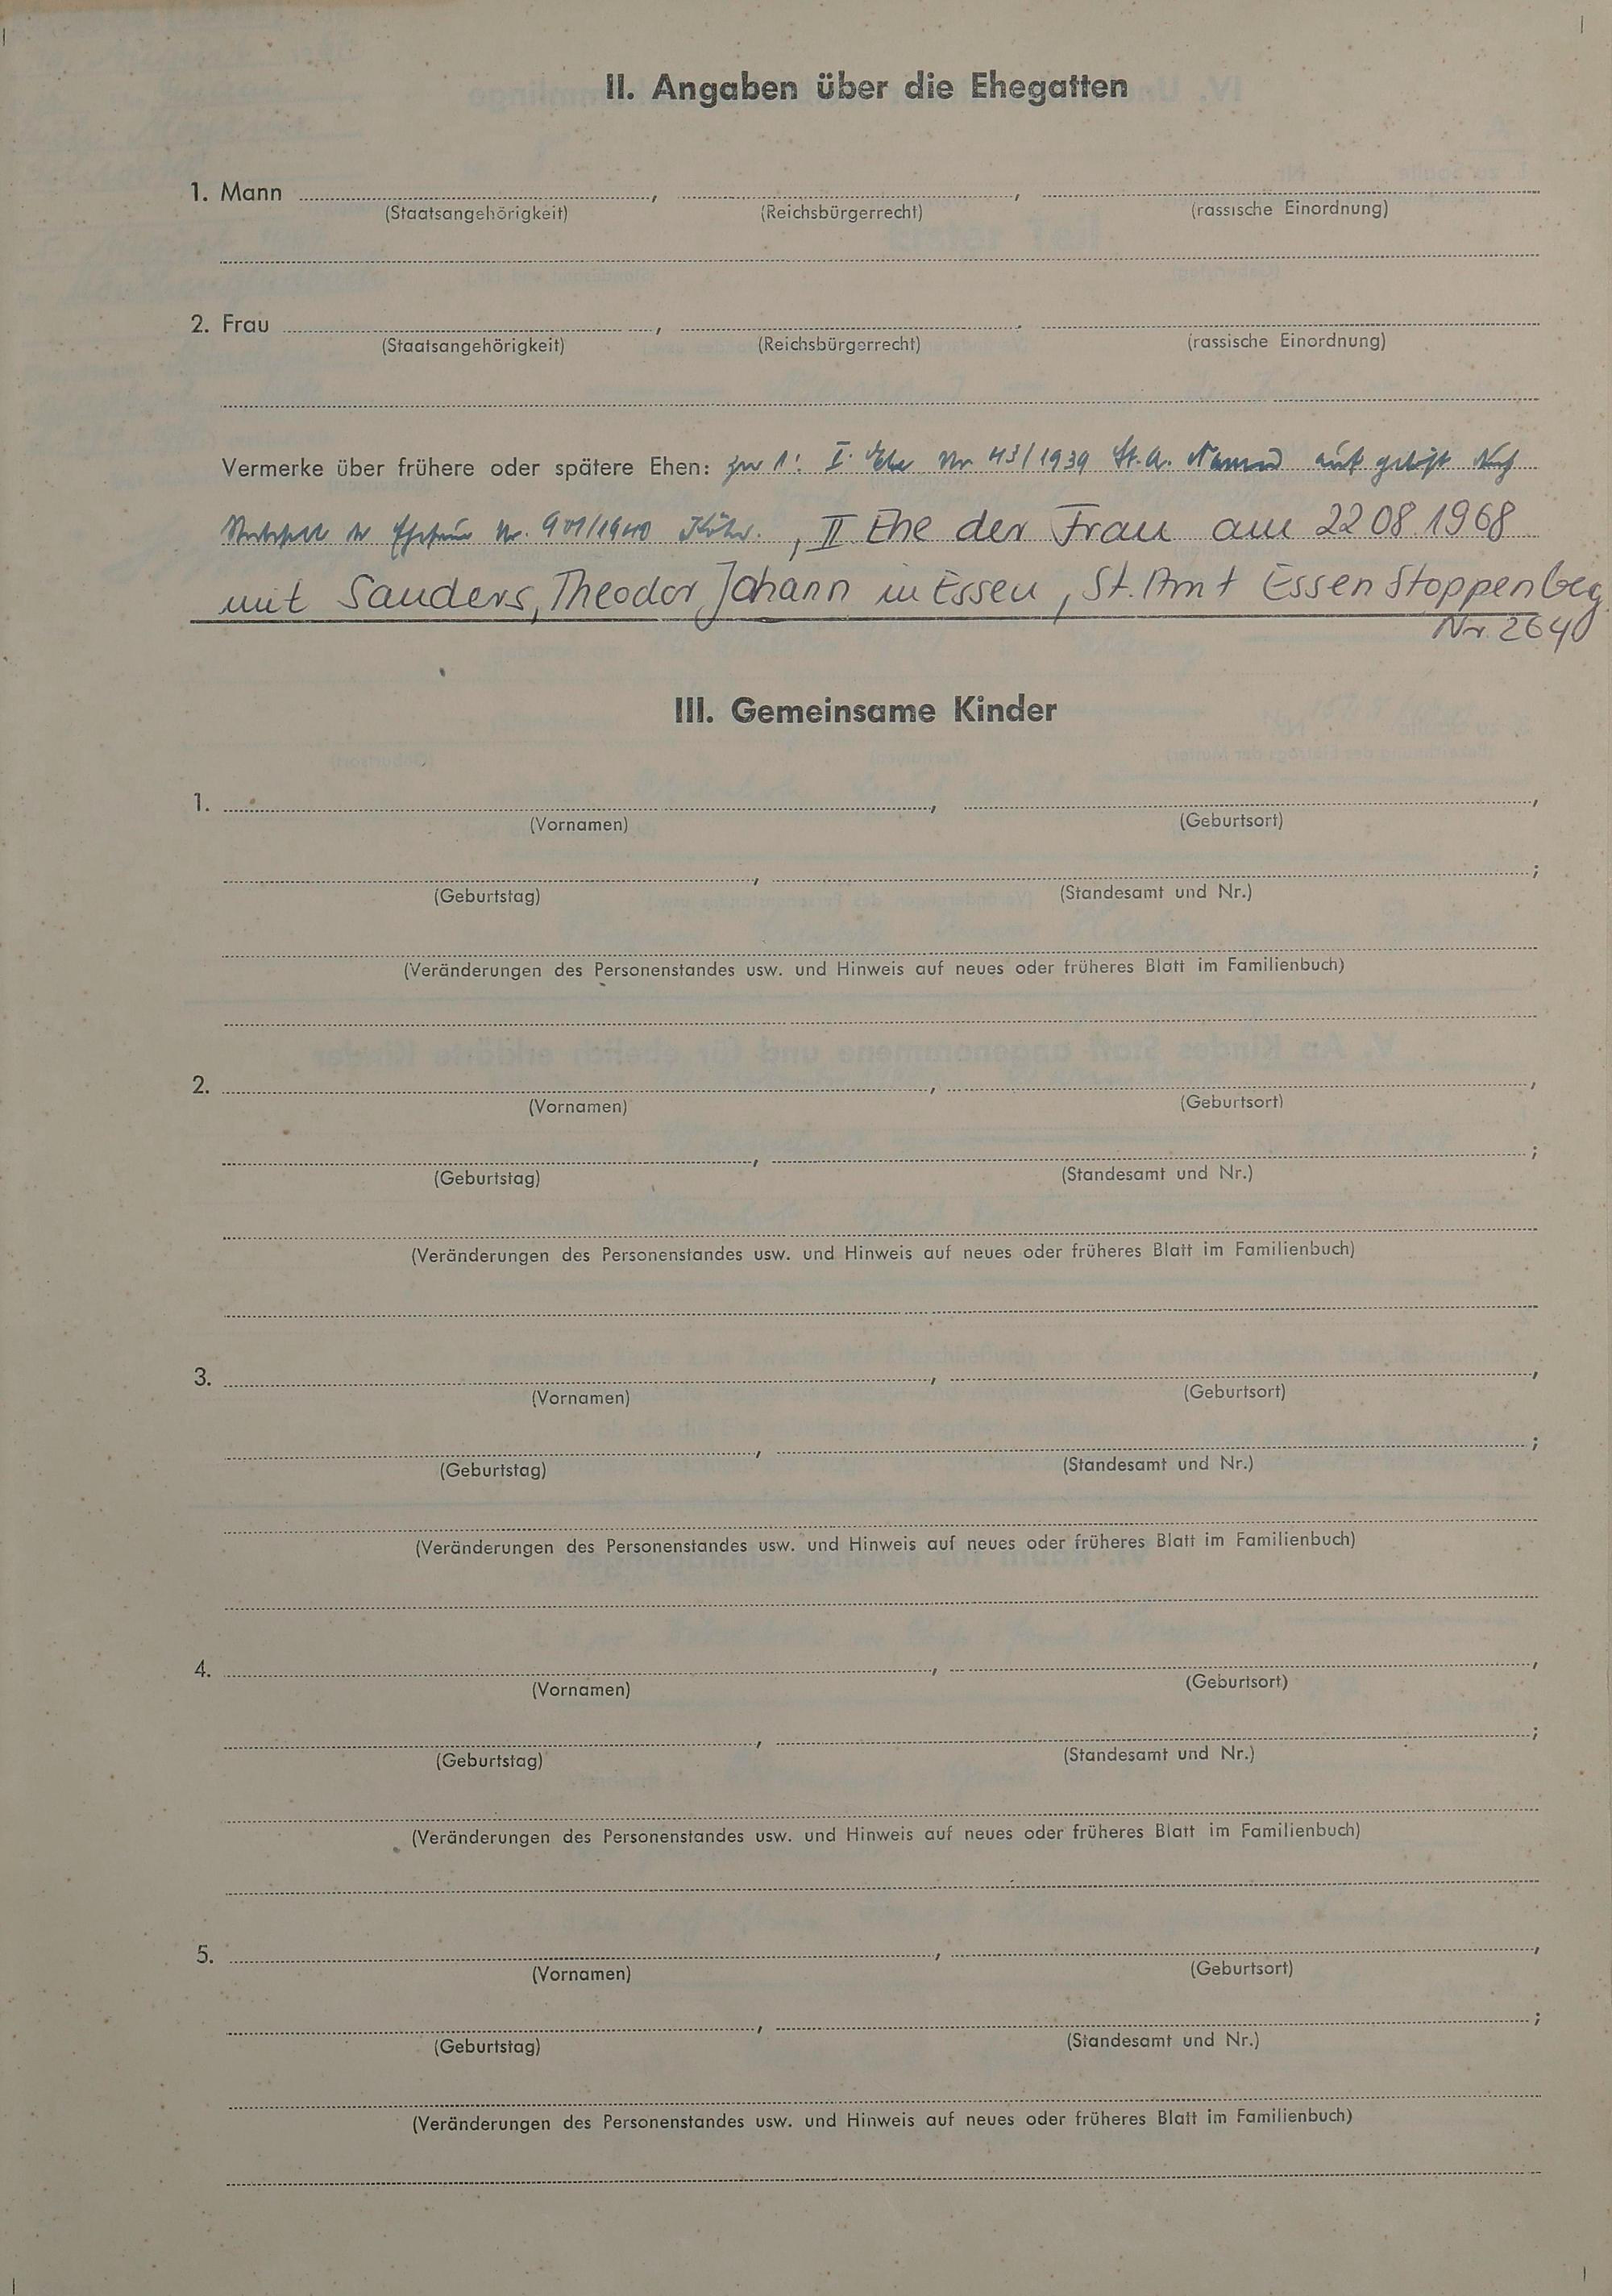 II. Angaben über die Ehegatten
1. Mann , ,
(Staatsangehörigkeit) (Reichsbürgerrecht) (rassische Einordnung)
2. Frau , .
(Staatsangehörigkeit) (Reichsbürgerrecht) (rassische Einordnung)
Vermerke über frühere oder spätere Ehen: zu 1: I. Ehe Nr. 43/1939 St.A. aufgelöst
Nr. 901/1940 , II Ehe der Frau am 22 08.1968
mit Sanders, Theodor Johann in Essen, St. Amt Essen Stoppenbeg
Nr. 2640
III. Gemeinsame Kinder
1. , ,
(Vornamen) (Geburtsort)
, ;
(Geburtstag) (Standesamt und Nr.)
(Veränderungen des Personenstandes usw. und Hinweis auf neues oder früheres Blatt im Familienbuch)
2. , ,
(Vornamen) (Geburtsort)
, ;
(Geburtstag) (Standesamt und Nr.)
(Veränderungen des Personenstandes usw. und Hinweis auf neues oder früheres Blatt im Familienbuch)
3. , ,
(Vornamen) (Geburtsort)
, ;
(Geburtstag) (Standesamt und Nr.)
(Veränderungen des Personenstandes usw. und Hinweis auf neues oder früheres Blatt im Familienbuch)
4. , ,
(Vornamen) (Geburtsort)
, ;
(Geburtstag) (Standesamt und Nr.)
(Veränderungen des Personenstandes usw. und Hinweis auf neues oder früheres Blatt im Familienbuch)
5. , ,
(Vornamen) (Geburtsort)
, ;
(Geburtstag) (Standesamt und Nr.)
(Veränderungen des Personenstandes usw. und Hinweis auf neues oder früheres Blatt im Familienbuch)